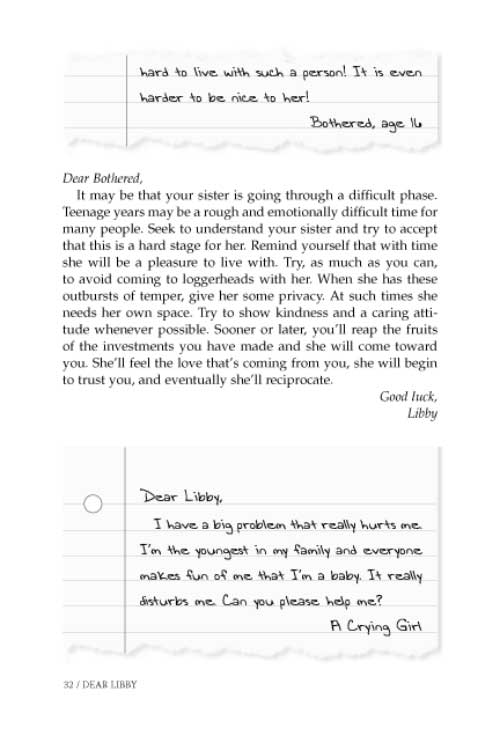 hard to live with such a person! It is even
harder to be nice to her!
Bothered, age 16
Dear Bothered,
It may be that your sister is going through a difficult phase.
Teenage years may be a rough and emotionally difficult time for
many people. Seek to understand your sister and try to accept
that this is a hard stage for her. Remind yourself that with time
she will be a pleasure to live with. Try, as much as you can,
to avoid coming to loggerheads with her. When she has these
outbursts of temper, give her some privacy. At such times she
needs her own space. Try to show kindness and a caring atti-
tude whenever possible. Sooner or later, you'll reap the fruits
of the investments you have made and she will come toward
you. She'll feel the love that's coming from you, she will begin
to trust you, and eventually she'll reciprocate.
Good luck,
Libby
Dear Libby,
I have a big problem that really hurts me.
I'm the youngest in my family and everyone
makes fun of me that I'm a baby. It really
disturbs me. Can you please help me?
A Crying Girl
32 / DEAR LIBBY